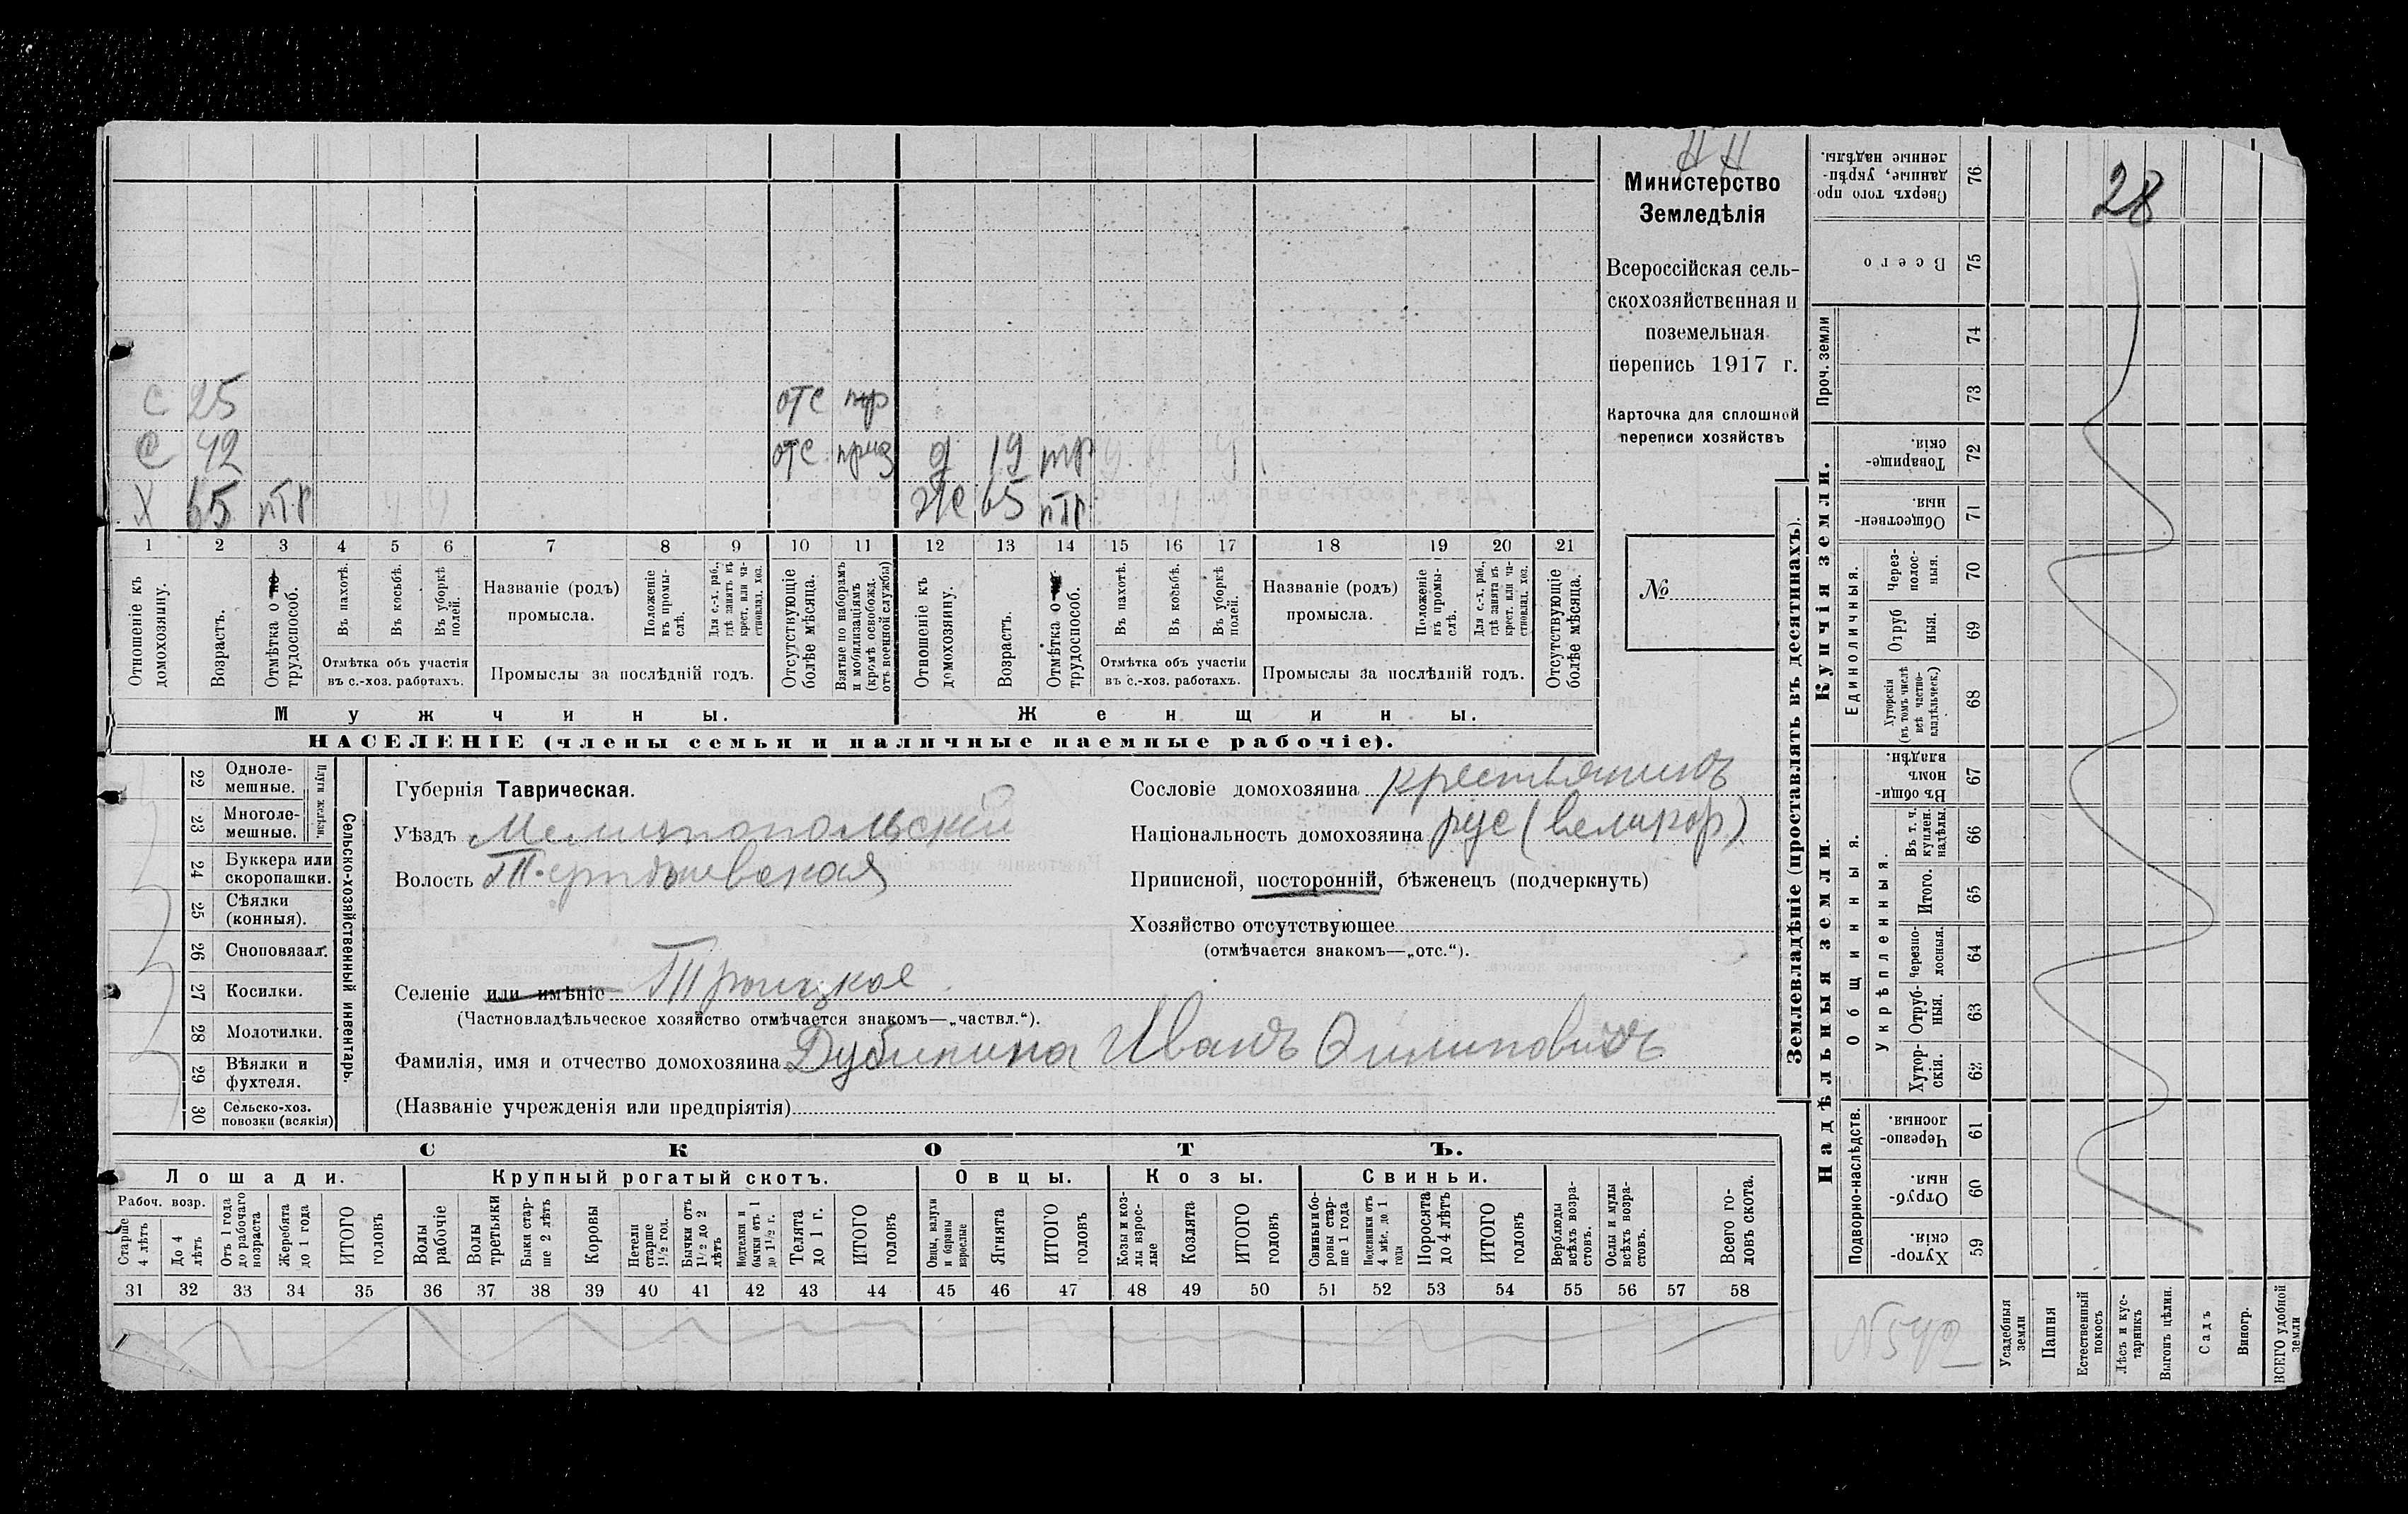 28
Министерство
Земледѣлія
Всероссійская сель-
скохозяйственная и
поземельная
перепись 1917 г.
Карточка для сплошной
переписи хозяйствъ
№
С 25 отс
С 42 отс приз д 19 тр
Х 65 птр же 65 птр
1 2 3 4 5 6 7 8 9 10 11 12 13 14 15 16 17 18 19 20 21
Отношеніе къ домохозяину.
Возрастъ.
Отмѣтка о трудоспособ.
Въ пахотѣ.
Въ косьбѣ.
Въ уборкѣ полей.
Отмѣтка объ участіи
въ с.-хоз. работахъ.
Названіе (родъ)
промысла.
Положеніе въ промы-слѣ.
Для с.-х. раб., гдѣ занятъ въ крест. или ча-стновлад. хоз.
Промыслы за послѣдній годъ.
Отсутствующіе болѣе мѣсяца.
Взятые по наборамъ и мобилизаціямъ (кромѣ освобожд. отъ военной службы)
Отношеніе къ домохозяину.
Возрастъ.
Отмѣтка о трудоспособ.
Въ пахотѣ.
Въ косьбѣ.
Въ уборкѣ полей.
Отмѣтка объ участіи
въ с.-хоз. работахъ.
Названіе (родъ)
промысла.
Положеніе въ промы-слѣ.
Для с.-х. раб., гдѣ занята въ крест. или ча-стновлад. хоз.
Промыслы за послѣдній годъ.
Отсутствующіе болѣе мѣсяца.
Мужчины.
Женщины.
НАСЕЛЕНІЕ (члены семьи и наличные наемные рабочіе).
22 Одноле-мешные.
23 Многоле-мешные.
Плуги желѣзн.
24 Буккера или скоропашки.
25 Сѣялки (конныя).
26 Сноповязал.
27 Косилки.
28 Молотилки.
29 Вѣялки и фухтеля.
30 Сельско-хоз. повозки (всякія)
Сельско-хозяйственный инвентарь.
Губернія Таврическая.
Уѣздъ Мелитопольскій
Волость
Селеніе или имѣніе Троицкое
(Частновладѣльческое хозяйство отмѣчается знакомъ—„частвл.“).
Фамилія, имя и отчество домохозяина Дубинина Иванъ Филиповичъ
(Названіе учрежденія или предпріятія)
Сословіе домохозяина крестьянинъ
Національность домохозяина рус (великор)
Приписной, посторонній, бѣженецъ (подчеркнуть)
Хозяйство отсутствующее
(отмѣчается знакомъ—„отс.“).
СКОТЪ.
Лошади. Крупный рогатый скотъ. Овцы. Козы. Свиньи.
Рабоч. возр.
Старше 4 лѣтъ
До 4 лѣтъ
Отъ 1 года до рабочаго возраста
Жеребята до 1 года
ИТОГО головъ
Волы рабочіе
Волы третьяки
Быки стар-ше 2 лѣтъ
Коровы
Нетели старше 1½ год.
Бычки отъ 1½ до 2 лѣтъ
Подтелки и бычки отъ 1 до 1½ г.
Телята до 1 г.
ИТОГО головъ
Овцы, валухи и бараны взрослые
Ягнята
ИТОГО головъ
Козы и коз-лы взрос-лые
Козлята
ИТОГО головъ
Свиньи и бо-ровы стар-ше 1 года
Подсвинки отъ 4 мѣс. до 1 года
Поросята до 4 лѣтъ
ИТОГО головъ
Верблюды всѣхъ возра-стовъ.
Ослы и мулы всѣхъ возра-стовъ.
Всего го-ловъ скота.
31 32 33 34 35 36 37 38 39 40 41 42 43 44 45 46 47 48 49 50 51 52 53 54 55 56 57 58
Землевладѣніе (проставлять въ десятинахъ).
Купчія земли.
Надѣльныя земли.
Сверхъ того про-данные, укрѣп-ленные надѣлы. 76
Всего 75
Проч. земли 74
73
Товарище-скія. 72
Обществен-ныя 71
Единоличныя.
Через-полос-ныя. 70
Отруб ныя. 69
Хуторскія (въ томъ числѣ всѣ частно-владѣльческ.) 68
Общинныя.
Въ общи-номъ владѣн. 67
Укрѣпленныя.
Въ т. ч. куплен. надѣлы. 66
Итого. 65
Черезпо-лосныя. 64
Отруб-ныя. 63
Хутор-скія. 62
Подворно-наслѣдств.
Черезпо-лосныя 61
Отруб-ныя. 60
Хутор-скія. 59
N 540
Усадебныя земли
Пашня
Естественный покосъ
Лѣсъ и кус-тарникъ
Выгонъ цѣлин.
Садъ
Виногр.
ВСЕГО удобной земли